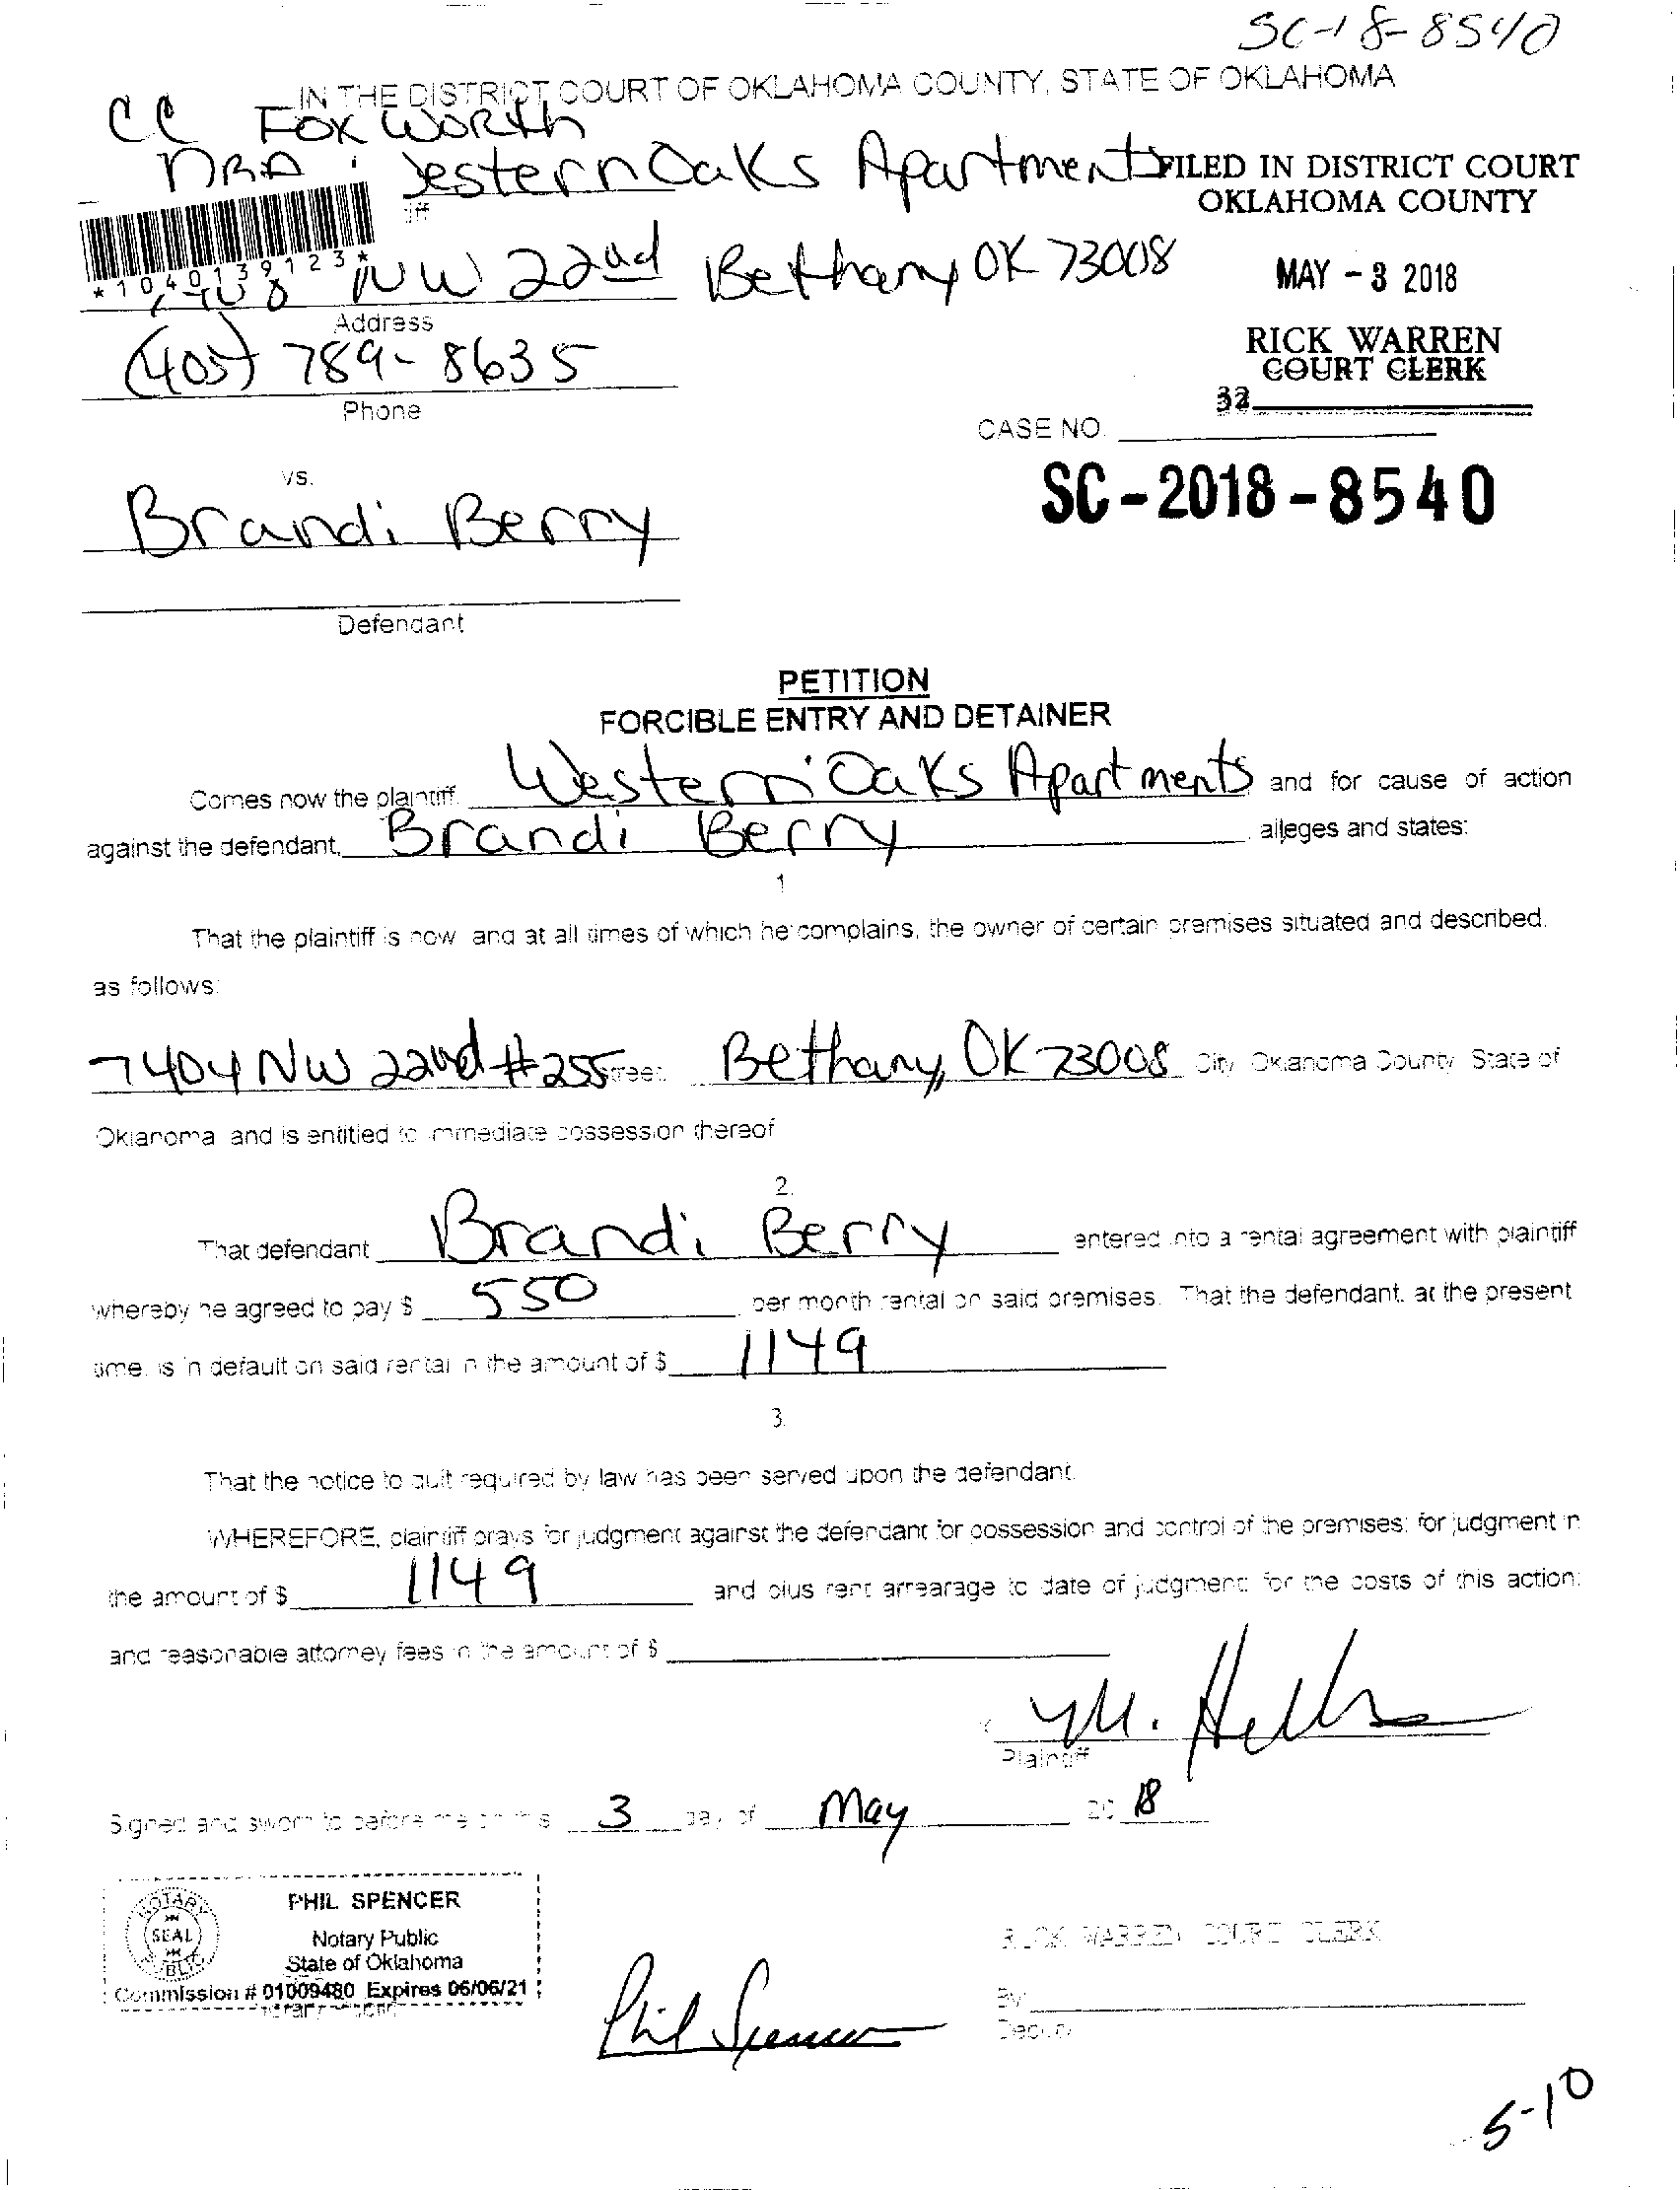 SC-18-8540
IN THE DISTRICT COURT OF OKLAHOMA COUNTY, STATE OF OKLAHOMA
CC FOX WORTH
DBA
Western Oaks Apartments
FILED IN DISTRICT COURT
OKLAHOMA COUNTY
*1040139123*
NW 22nd Bethany OK 73008
MAY - 3 2018
Address
(405) 789-8635
RICK WARREN
COURT CLERK
Phone
32
CASE NO.
vs.
SC-2018-8540
Brandi Berry
Defendant
PETITION
FORCIBLE ENTRY AND DETAINER
Comes now the plaintiff, Western Oaks Apartments and for cause of action
against the defendant, Brandi Berry alleges and states:
1
That the plaintiff is now and at all times of which he complains, the owner of certain premises situated and described,
as follows:
7404 NW 22nd #255 Street Bethany, OK 73008 City Oklahoma County State of
Oklahoma and is entitled to immediate possession thereof
2.
That defendant Brandi Berry entered into a rental agreement with plaintiff
whereby he agreed to pay $ 550 per month rental on said premises. That the defendant, at the present
time, is in default on said rental in the amount of $ 1149
3.
That the notice to quit required by law has been served upon the defendant.
WHEREFORE, plaintiff prays for judgment against the defendant for possession and control of the premises; for judgment in
the amount of $ 1149 and plus rent arrearage to date of judgment; for the costs of this action;
and reasonable attorney fees in the amount of $
Plaintiff
Signed and sworn to before me on this 3 day of May 20 18
NOTARY
SEAL
PUBLIC
PHIL SPENCER
Notary Public
State of Oklahoma
Commission # 01009480 Expires 06/06/21
Notary Public
Phil Spencer
RICK WARREN COURT CLERK
By
Deputy
5-10